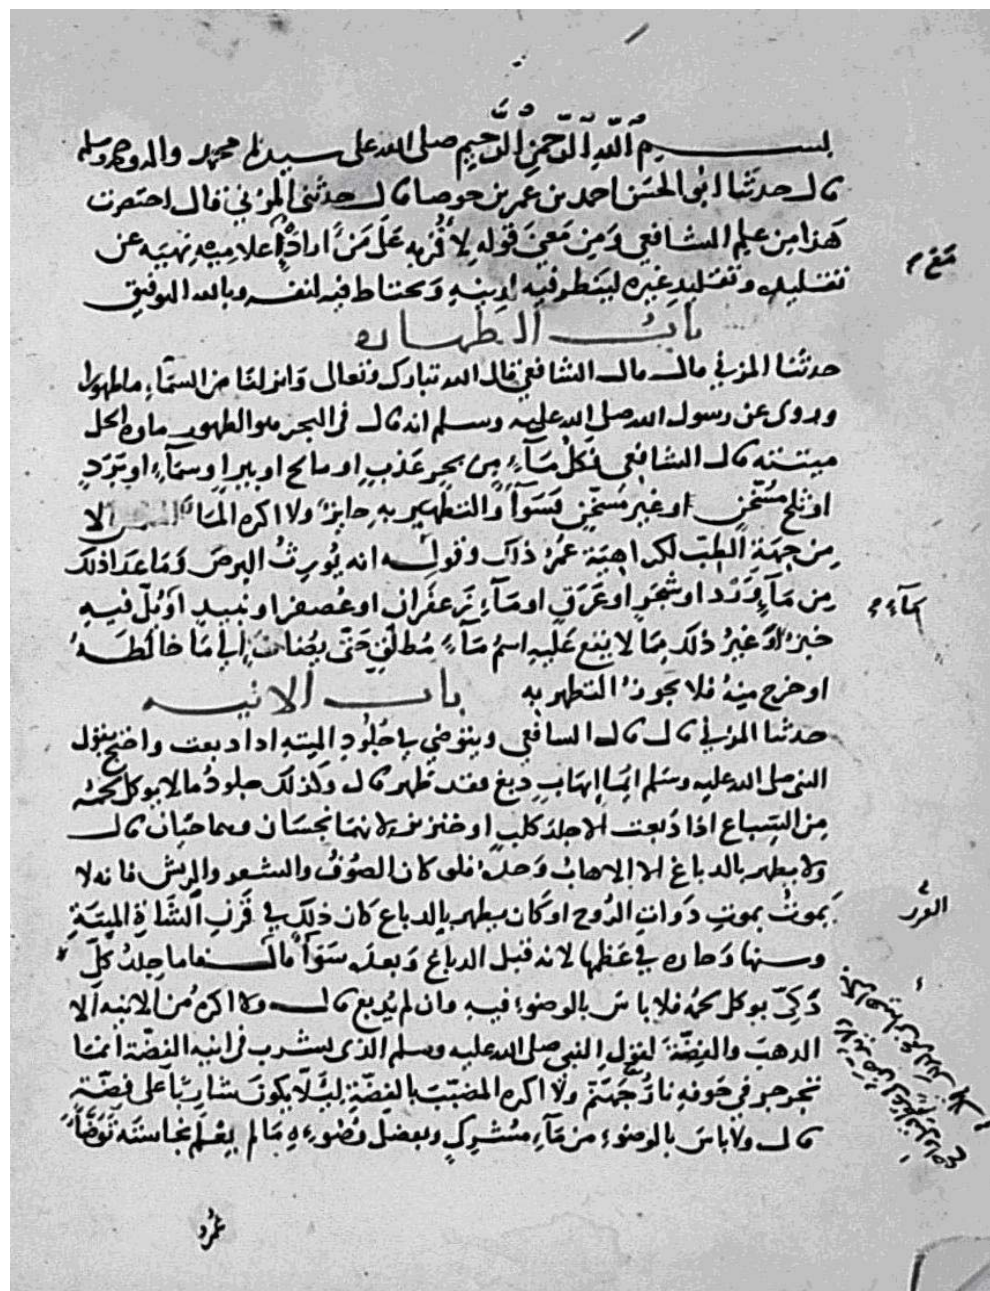 بسم الله الرحمن الرحيم صلى الله على سيدنا محمد واله وصحبه وسلم
قال حدثنا ابو الحسن احمد بن عمر بن جوصا قال حدثني المزني قال اختصرت
هذا من علم الشافعي ومن معنى قوله لاقربه على من اراده مع اعلاميه نهيه عن
تقليده وتقليد غيره لينظر فيه لدينه ويحتاط فيه لنفسه وبالله التوفيق
باب الطهاره
حدثنا المزني قال قال الشافعي قال الله تبارك وتعالى وانزلنا من السماء ماء طهورا
وروى عن رسول الله صلى الله عليه وسلم انه قال في البحر هو الطهور ماوه الحل
ميتته قال الشافعي فكل ماء من بحر عذب او مالح او بير او سماء او برد
او ثلج مسخن او غير مسخن فسواء والتطهير به جايز ولا اكره الماء المشمس الا
من جهة الطب لكراهية عمر ذلك وقوله انه يورث البرص وما عدا ذلك
من ماء ورد او شجر او عرق او ماء زعفران او عصفر او نبيذ او بل فيه
خبز او غير ذلك مما لا يقع عليه اسم ماء مطلق حتى يضاف الى ما خالطه
او خرج منه فلا يجوز التطهر به
باب الانيه
حدثنا المزني قال قال الشافعي ويتوضى في جلود الميته اذا دبغت واحتج بقول
النبي صلى الله عليه وسلم ايما اهاب دبغ فقد طهر قال وكذلك جلود ما لا يوكل لحمه
من السباع اذا دبغت الا جلد كلب او خنزير لانهما نجسان وهما حيان قال
ولا يطهر بالدباغ الا الاهاب وحده فلو كان الصوف والشعر والريش فانه لا
يموت بموت ذوات الروح او كان يطهر بالدباغ كان ذلك في قرن الشاة الميتة
وسنها وجاز في عظمها لانه قبل الدباغ وبعده سواء قال فاما جلد كل
ذكي يوكل لحمه فلا باس بالوضوء فيه وان لم يدبغ قال ولا اكره من الانيه الا
الذهب والفضة لقول النبي صلى الله عليه وسلم الذي يشرب في انية الفضة انما
يجرجر في جوفه نار جهنم ولا اكره المضبب بالفضة ليلا يكون شاربا على فضة
قال ولا باس بالوضوء من ماء مشرك وبفضل وضوءه ما لم يعلم نجاسته توضا
عمر